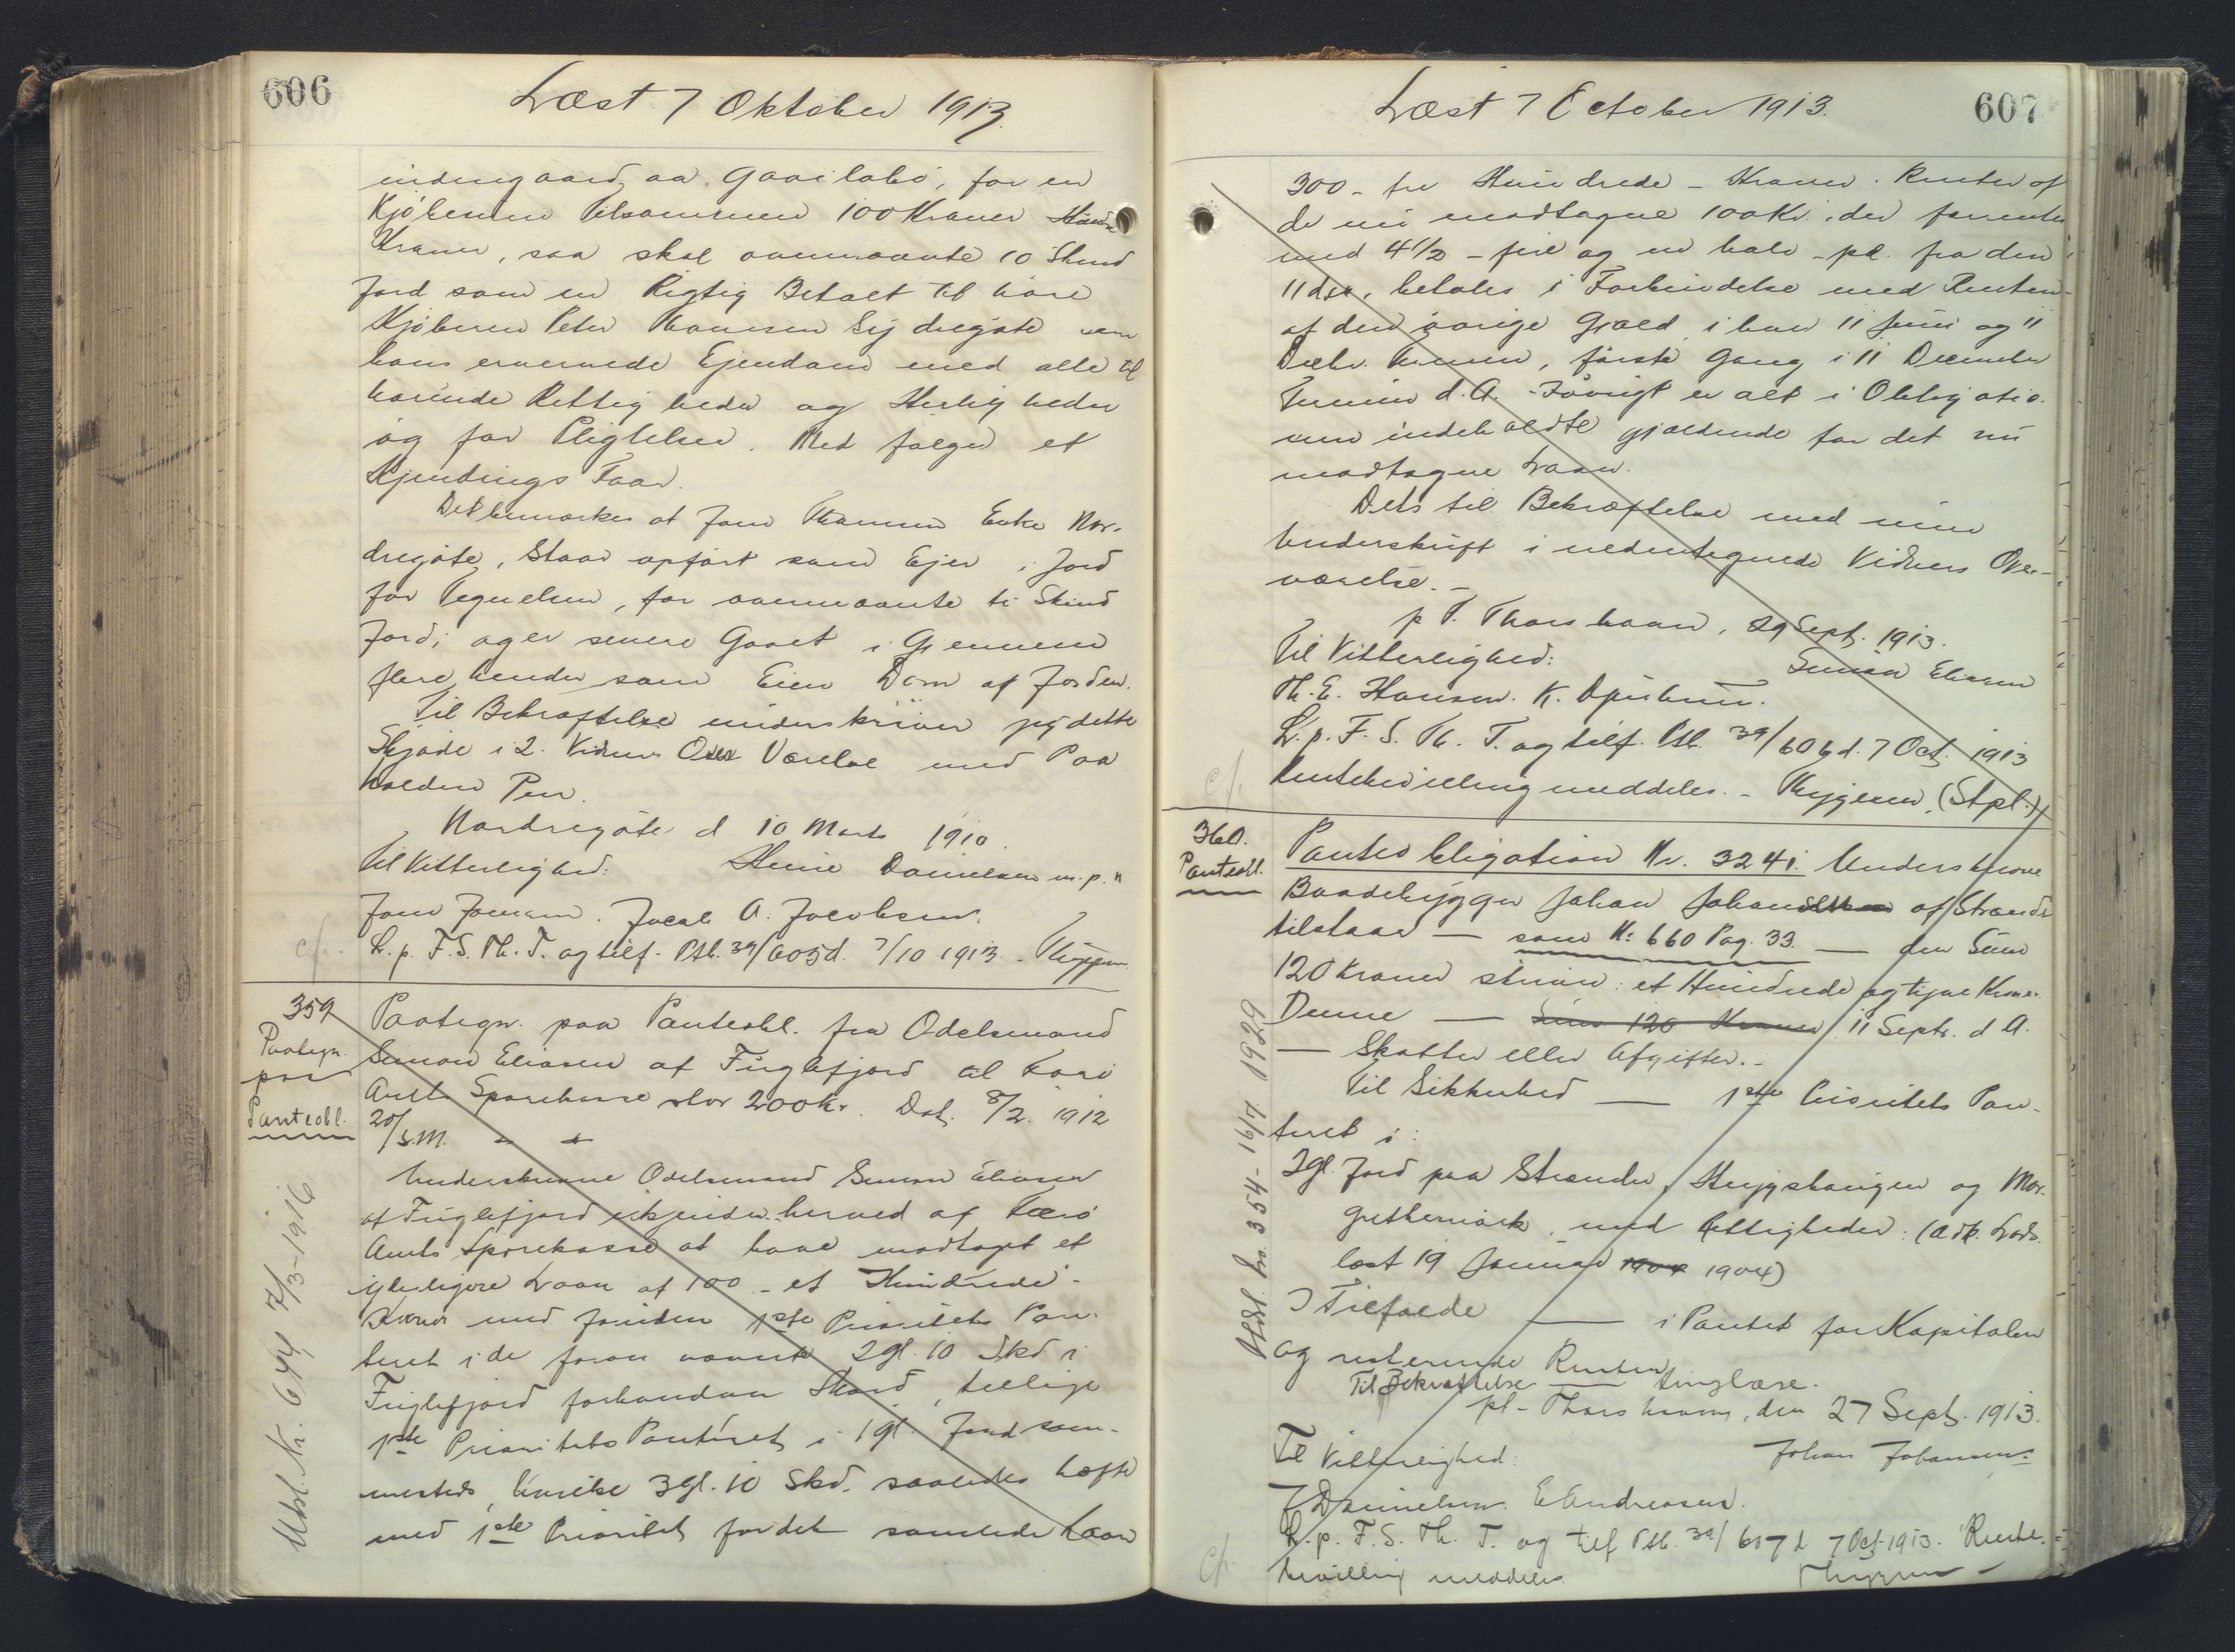 606
Læst 7 Oktober 1913.
indengaards aa Gaoilobö, for en
Kjöbesum Tilsammen 100 Kroner Hund
Kroner, saa skal ovennævnte 10 Skind
Jord som en Rigtig Betalt til höre
Kjöberen Peter Thomsen Sydregöte som
hans erværvede Ejendom med alle til
hörende Rettigheder og Herligheder
og for Pligtelser. Med følger et
Kjendings Faar.
Det bemærkes at Joen Thomsen Enke Nor-
dregöte, staar opfört som Ejer i Jord
for Tegnelsen, for ovennævnte ti Skind
Jord; og er senere Gaaet i Gjennem
flere hender som Eien Dom af Jorden.
Til Bekræftelse underskriver jeg dette
Skjöde i 2. Vidners Over Værelse med Paa
holden Pen.
Nordregöte d 10 Marts 1910.
Til Vitterlighed: Heine Danielsen m. p. P.
Joen Joensen. Jacob A. Jacobsen.
cfr. L. p. F. S. Th. T. og tilf. Ptb. 39/605 d. 7/10 1913. - Thygesen
359
Paategn.
paa
Panteobl.
Paategn. paa Panteobl. fra Odelsmand
Simon Eliasen af Fuglefjord til Færö
Amts Sparekasse stor 200 Kr. Dat. 8/2. 1912
20/S.M.
Underskrevne Odelsmand Simon Eliasen
af Fuglefjord erkjender herved af Færö
Amts Sparekasse at have modtaget et
yderligere Laan af 100 - et Hundrede -
Kroner mod foruden 1ste Prioritets Pan-
teret i de foran nævnte 2 gl. 10 Skd i
Fuglefjord forhenværende, tillige
1ste Prioritets Panteret i 1 gl. Jord sam-
mesteds, hvilke 3 gl. 10 Skd. saaledes hæfte
med 1ste Prioritet for det samlede Laan
Udsl. Nr. 644 7/3-1916
Læst 7 October 1913.
607
300 - tre Hundrede - Kroner. Renten af
de nu modtagne 100 Kr., der forrentes
med 4 1/2 - fire og en halv - pCt. fra den
11 ds., betales i Forbindelse med Renten
af den övrige Gjæld i hver 11 Juni og 11
Decbr. Termin, förste Gang i 11 December
Termin d. A. - Iövrigt er alt i Obligatio-
nen indeholdte gjældende for det nu
modtagne Laan.
Dets til Bekræftelse med min
Underskrift i nedentegnede Vidners Over-
værelse. -
p. T. Thorshavn, 29 Sept. 1913.
Til Vitterlighed: Simon Eliasen
Th. E. Hansen. K. Djurhuus.
L. p. F. S. Th. T. og tilf. Ptb. 39/606 d. 7 Oct. 1913
cfr. Rentebevilling meddeles. - Thygesen. (Stpl.)
360.
Panteobl.
Panteobligation Nr. 3241. Underskrevne
Baadebygger Johan Johansen af Strænder
tilstaar — som No 660 Pag. 33. — den Sum
120 Kroner skriver: et Hundrede og tyve Kroner
Denne — Sum 120 Kroner 11 Septr. d A.
— Skatter eller Afgifter. -
Til Sikkerhed — 1ste Prioritets Pan-
teret i:
2 gl. Jord paa Strænder, Heygshaugen og Mar-
grethemark, med Rettigheder: (Adk. Lods.
læst 19 Januar 1904 1904)
I Tilfælde — i Pantet for Kapitalen
og resterende Renter
Til Bekræftelse — tinglæse.
pt - Thorshavn, den 27 Sept. 1913.
Til Vitterlighed: Johan Johansen.
J Danielsen. E Andreasen.
L. p. F. S. Th. T. og tilf Ptb. 39/607 d 7 Oct. 1913. Rente-
cfr. bevilling meddeles. Thygesen
Udsl. Nr. 354 - 16/7 1929